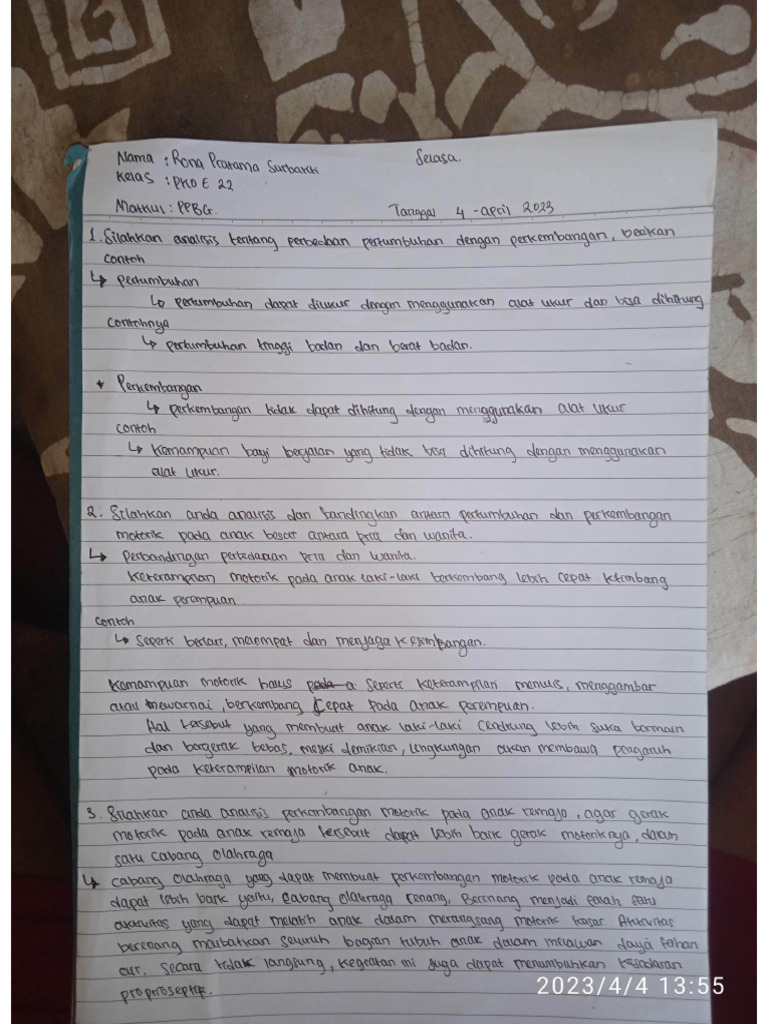 Nama : Rona Pratama Surbakti
Selasa.
Kelas : PKO E 22
Matkul : PPBG.
Tanggal 4 - april 2023
1. Silahkan analisis tentang perbedaan pertumbuhan dengan perkembangan, berikan
contoh
↳ pertumbuhan
↳ pertumbuhan dapat diukur dengan menggunakan alat ukur dan bisa dihitung
contohnya
↳ pertumbuhan tinggi badan dan berat badan.
* Perkembangan
↳ perkembangan tidak dapat dihitung dengan menggunakan alat ukur
contoh
↳ Kemampuan bayi berjalan yang tidak bisa dihitung dengan menggunakan
alat ukur.
2. Silahkan anda analisis dan bandingkan antara pertumbuhan dan perkembangan
motorik pada anak besar antara pria dan wanita.
↳ Perbandingan pria dan wanita.
Keterampuan motorik pada anak laki-laki berkembang lebih cepat ktimbang
anak perempuan
contoh
↳ Seperti berlari, melempat dan menjaga kesimbangan.
Kemampuan motorik halus pada a seperti keterampilan menulis, menggambar
atau mewarnai, berkembang cepat pada anak perempuan.
Hal tersebut yang membuat anak laki-laki cendrung lebih suka bermain
dan bergerak bebas, meski demikian, lengkungan akan membawa pengaruh
pada keterampilan motorik anak.
3. Silahkan anda analisis perkembangan motorik pada anak remaja, agar gerak
motorik pada anak remaja tersebut dapat lebih baik gerak motoriknya, dalam
satu cabang olahraga
↳ cabang olahraga yang dapat membuat perkembangan motorik pada anak remaja
dapat lebih baik yaitu, cabang olahraga renang, Berenang menjadi salah satu
aktivitas yang dapat melatih anak dalam merangsang motorik kasar. Aktivitas
berenang melibatkan seluruh bagian tubuh anak dalam melawan daya tahan
air. Secara tidak langsung, kegiatan ini juga dapat menumbuhkan kesadaran
proprioseptif.
2023/4/4 13:55